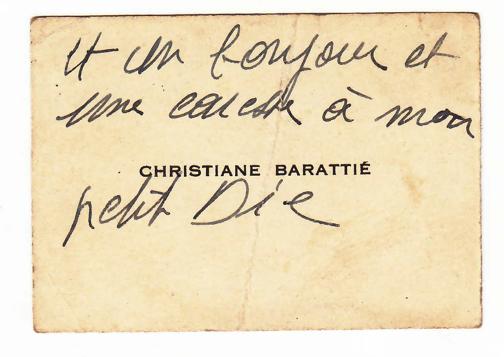 et un bonjour et
une caresse à mon
CHRISTIANE BARATTIÉ
petit Die